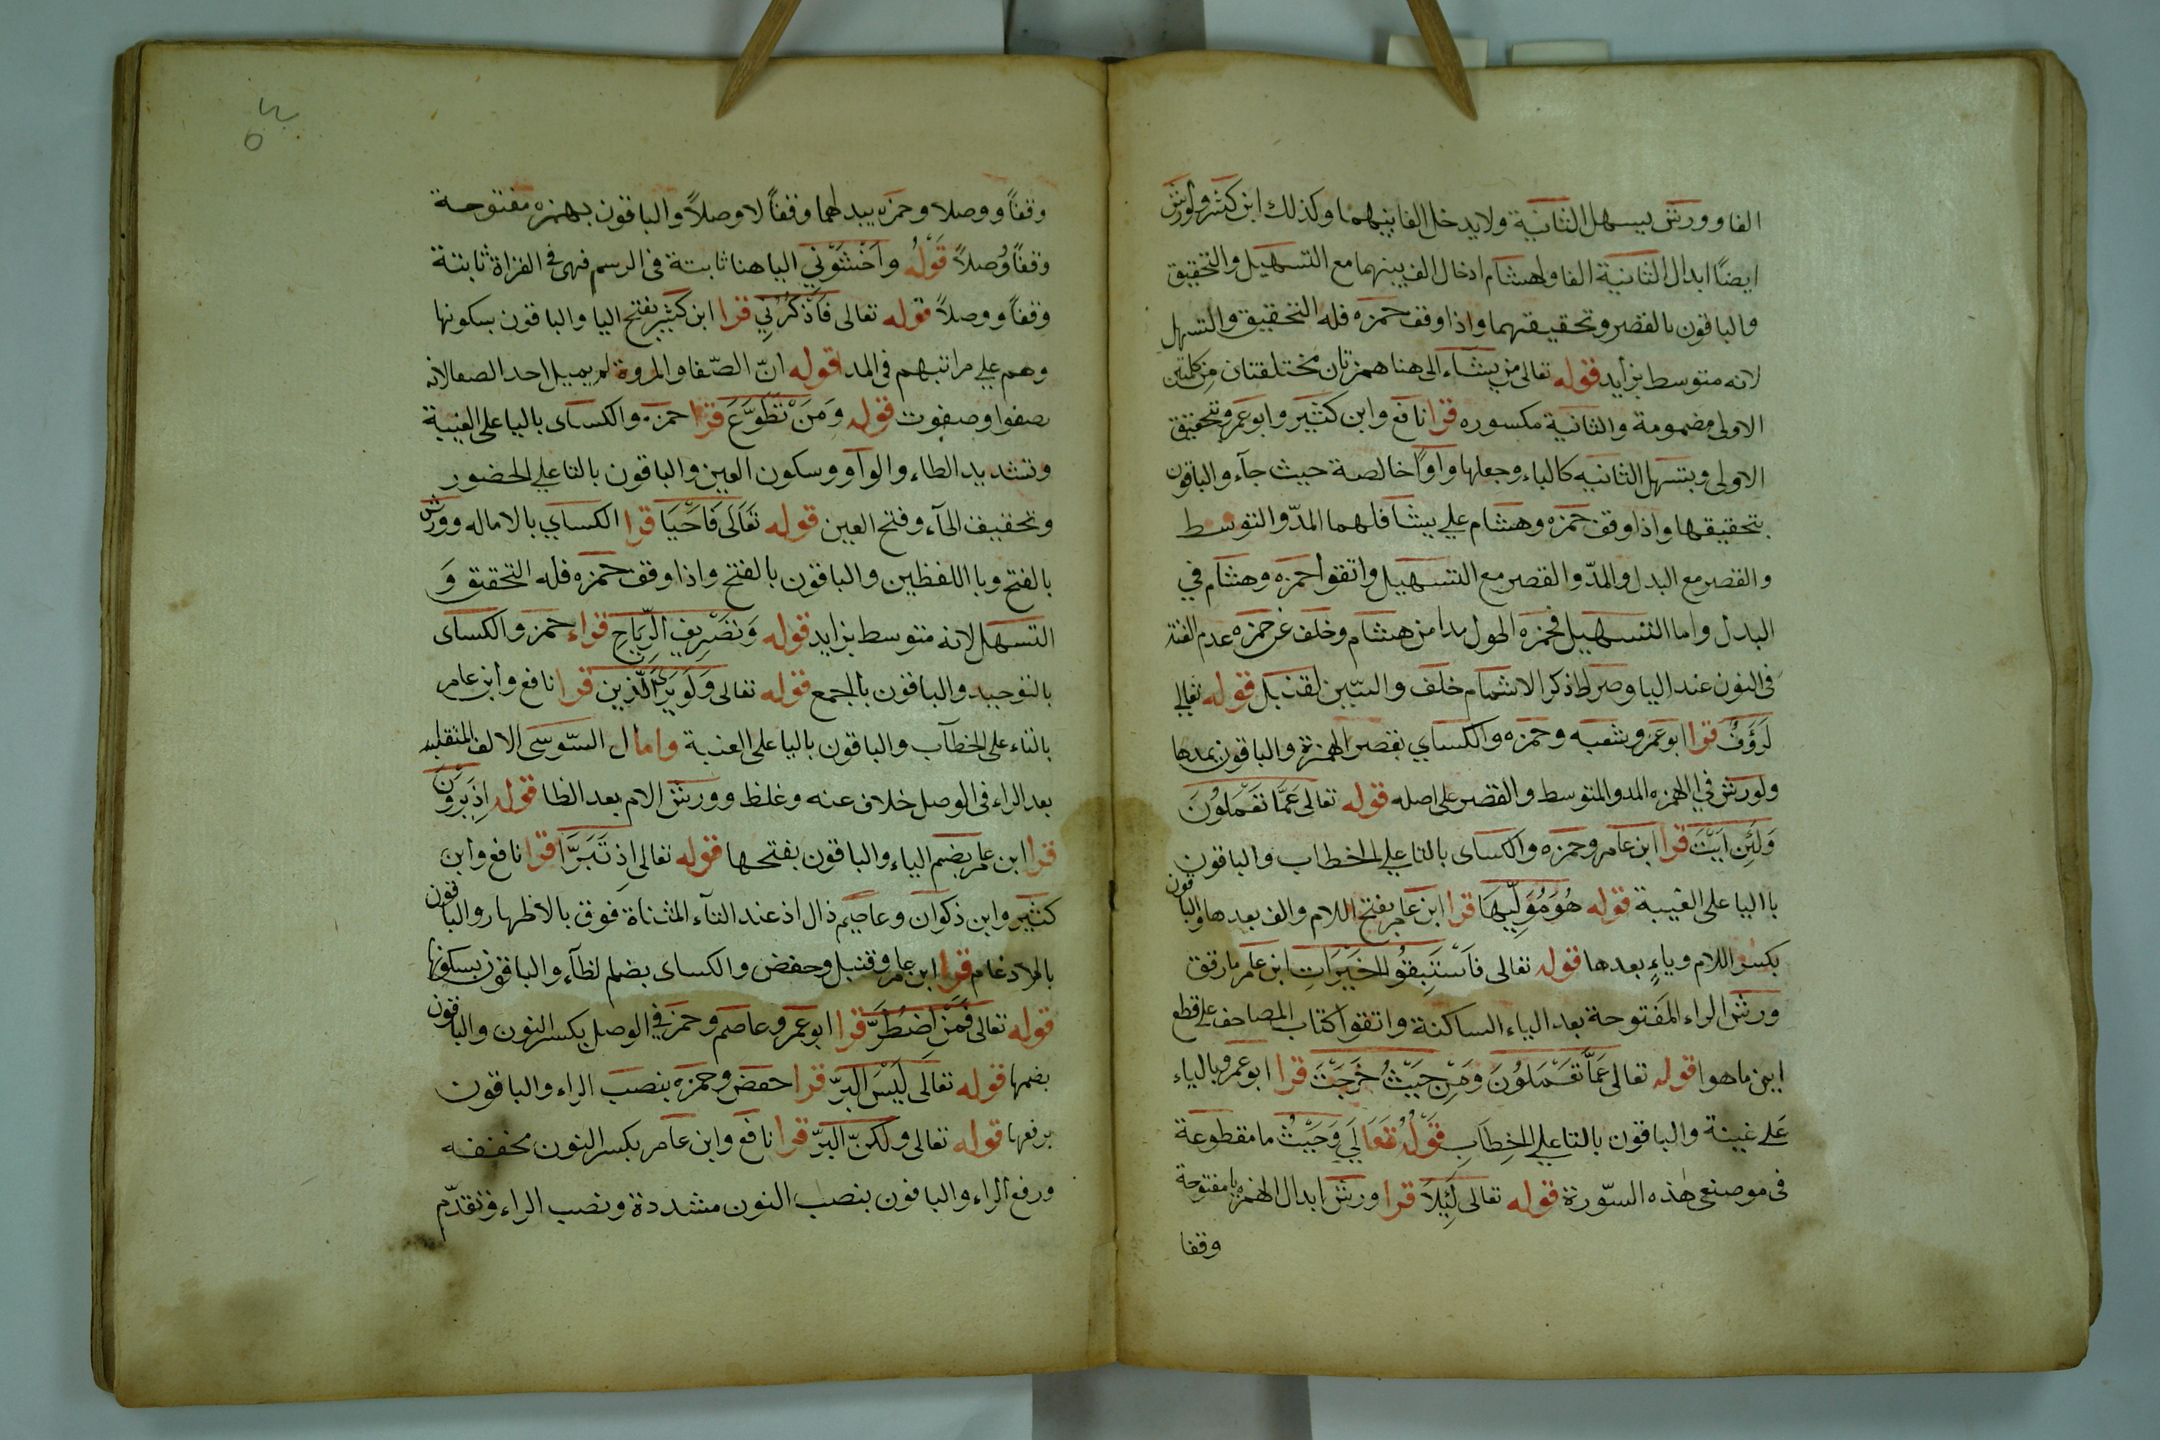 الفا وورش يسهل الثانية ولا يدخل الفا بينهما وكذلك ابن كثير ولورش
ايضًا ابدال الثانية الفا ولهشام ادخال الف بينهما مع التسهيل والتحقيق
والباقون بالقصر وتحقيقهما واذا وقف حمزه فله التحقيق والتسهيل
لانه متوسط بزايد قوله تعالى من يشاء الى هنا همزتان مختلفتان من كلمتين
الاولى مضمومة والثانية مكسوره قرا نافع وابن كثير وابو عمرو بتحقيق
الاولى وبتسهيل الثانيه كالياء وجعلها واوًا خالصة حيث جآء والباقون
بتحقيقها واذا وقف حمزه وهشام على يشا فلهما المدّ والتوسط
والقصر مع البدل والمدّ والقصر مع التسهيل واتقوا حمزه وهشام في
البدل واما التسهيل فحمزه اطول مدا من هشام وخلف عن حمزه عدم الغنة
فى النون عند اليا وصراط ذكر الاشمام خلف والسّين لقنبل قوله تعالى
لَرَؤُفٌ قرا ابو عمرو وشعبه وحمزه والكساي بقصر الهمزة والباقون بمدها
ولورش في الهمزه المد والمتوسط والقصر على اصله قوله تعالى عَمَّا تَعْمَلُونَ
وَلَئِن اَتَيْتَ قرا ابن عامر وحمزه والكساى بالتا على الخطاب والباقون
باليا على الغيبة قوله هُوَ مُوَلِّيهَا قرا ابن عامر بفتح اللام والف بعدها والباقون
بكسر اللام وياءٍ بعدها قوله تعالى فاَسْتَبِقُوا الْخَيْرَاتِ ابن عامر مارقق
ورش الراء المفتوحة بعد الياء الساكنة واتقوا كتاب المصاحف على قطع
اين ما هوا قوله تعالى عَمَّا تَعْمَلُونَ وَمِنْ حَيْثُ خَرَجْتَ قرا ابو عمرو بالياء
عَلى غيبة والباقون بالتا على الخِطابِ قَوْلُ تَعَالَي وَحَيْثُ ما مقطوعة
فى موضعى هٰذه السّورة قوله تعالى لِئَلَّا قرا ورش ابدال الهمزه يا مفتوحة
وقفا
وقفًا ووصلا وحمزه يبدلهما وقفًا لا وصلاً والباقون بهمزه مفتوحة
وقفًا وُصلاً قَوْلُهُ واَخْشَوْنِي اليا هنا ثابتة فى الرسم فهى فى القراة ثابتة
وقفًا ووصلاً قوله تعالى فَاَذْكُرُنِي قرا ابن كثير بفتح اليا والباقون بسكونها
وهم على مراتبهم فى المد قوله انّ الصّفا والمروة لم يميل احد الصفا لانه
صفوا وصفوت قوله وَمَنْ تَطَوَّعَ قرا حمزه والكساى باليا على الغيبة
وتشديد الطاء والواو وسكون العين والباقون بالتا على الحضور
وتخفيف الحآء وفتح العين قوله تَعَالَى فَاَحْيَا قرا الكساي بالاماله وورش
بالفتح وبا اللفظين والباقون بالفتح واذا وقف حمزه فله التحقق وَ
التسهل لانه متوسط بزايد قوله وَتَصْرِيفِ الرِّيَاحِ قراء حمز والكساى
بالتوحيد والباقون بالجمع قوله تعالى وَلَوْ يَرَي الَّذِين قرا نافع وابن عامر
بالتاء على الخطآب والباقون باليا على الغيبة وامال السّوسى الالف المنقلبه
بعد الراء فى الوصل خلاف عنه وغلظ وورش الام بعد الظا قوله اِذ يَرَوْنَ
قرا ابن عامر بضم الياء والباقون بفتحها قوله تعالى اِذ تَبَرَّا قرا نافع وابن
كثير وابن ذكوان وعاصم ذال اذ عند التآء المثناة فوق بالاظهار والباقون
بالادغام قرا ابن عامر وقنبل وحفض والكساى بضم الطآء والباقون بسكونها
قوله تعالى فَمَنِ اضْطُرَّ قرا ابو عمر وعاصم وحمز فى الوصل بكسر النون والباقون
بضمها قوله تعالى لَيْسَ البرّ قرا حفض وحمزه بنصب الراء والباقون
برفعها قوله تعالى ولكنّ البرّ قرا نافع وابن عامر بكسر النون مخففه
ورفع الراء والباقون بنصب النون مشددة ونصب الراء وتقدّم